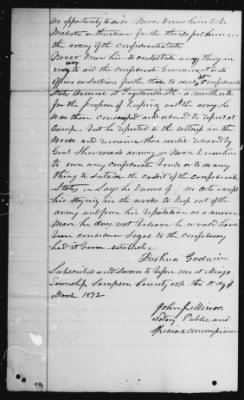 no opportunity to do so. Never knew him to be
molested or threatened for the things put him in
the army of the confederate state
Never knew him to contribute any thing in
way to aid the confederate Government or its
officers or soldiers further than to work at Confederate
State Arsenal at Fayetteville a month or so
for the purpose of keeping out the army, he
was then conscripted and ordered to report at
Camp, but he reported at the
woods and remained there under relieved by
Genl Sherman's army, never knew him
to own any confederate bonds or to do any
thing to sustain the credit of the confederate
States, Says he knows of no act except
his staying in the woods to keep out of the
army and from his reputation as a union
man he does not believe he would have
been considered loyal to the confederacy
had it been established
Joshua Godwin
Subscribed and sworn to before me at Mingo
Township Sampson County this the 8 day of
March 1872
John
Notary Public and
Special commissioner